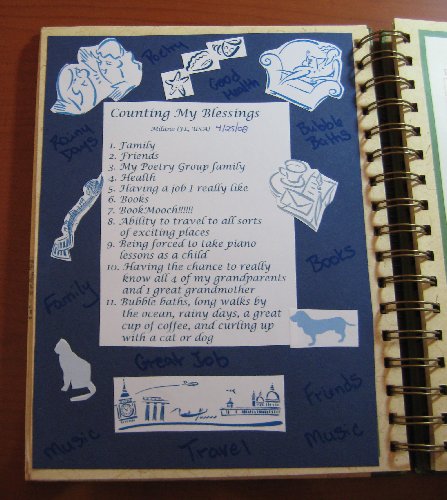 Poetry
Good
Health
Rainy
Days
Bubble
Baths
Counting My Blessings
Milaow (FL, USA) 4/25/08
1. Family
2. Friends
3. My Poetry Group family
4. Health
5. Having a job I really like
6. Books
7. BookMooch!!!!!
8. Ability to travel to all sorts
of exciting places
9. Being forced to take piano
lessons as a child
10. Having the chance to really
know all 4 of my grandparents
and 1 great grandmother
11. Bubble baths, long walks by
the ocean, rainy days, a great
cup of coffee, and curling up
with a cat or dog
Books
Family
Great Job
Friends
Music
Travel
Music